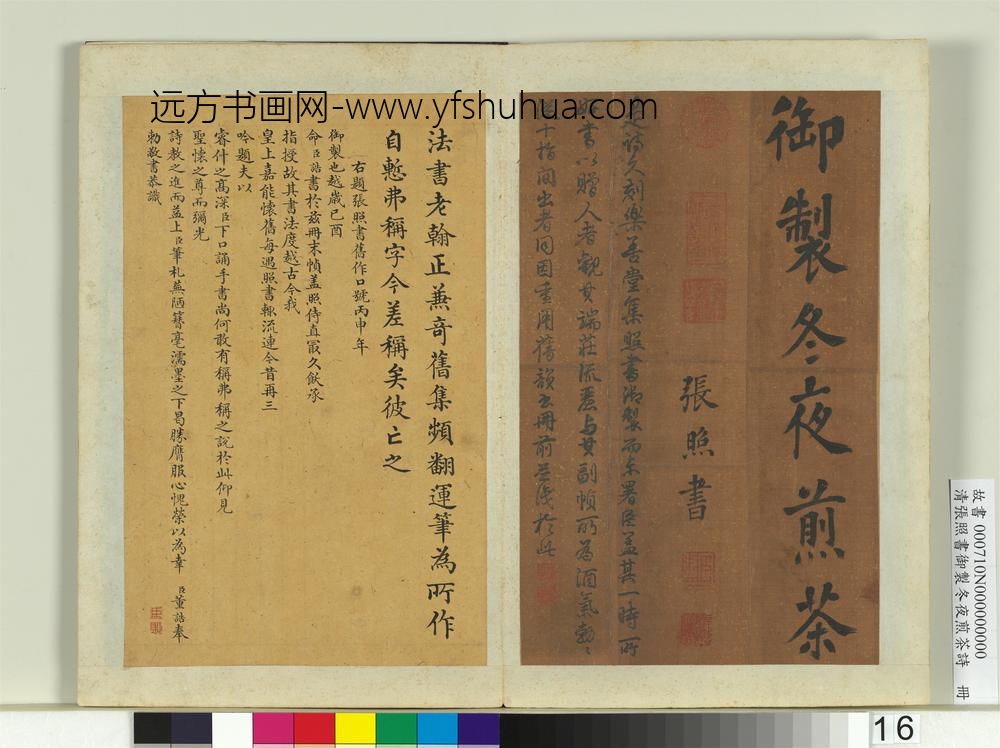 远方书画网-www.yfshuhua.com
御製冬夜煎茶
張照書
久刻樂善堂集照書御製而未署臣盖其一時所
書以贈人者觀其端莊流麗与其副幀所為酒氣勃〻
十指間出者同因重用舊韻書冊前並識於此
法書老翰正兼奇舊集頻翻運筆為所作
自慙弗稱字今差稱矣彼亡之
右題張照書舊作口號丙申年
御製也越歲己酉
命臣誥書於兹冊末幀盖照侍直最久飲承
指授故其書法度越古今我
皇上嘉能懷舊每遇照書輒流連今昔再三
吟題夫以
睿什之高深臣下口誦手書尚何敢有稱弗稱之說於此仰見
聖懷之尊而彌光
詩教之進而益上臣筆札蕪陋簪毫濡墨之下曷勝膺服心愧榮以為幸 臣董誥奉
勅敬書恭識
故書 000710N000000000
清張照書御製冬夜煎茶詩 冊
16